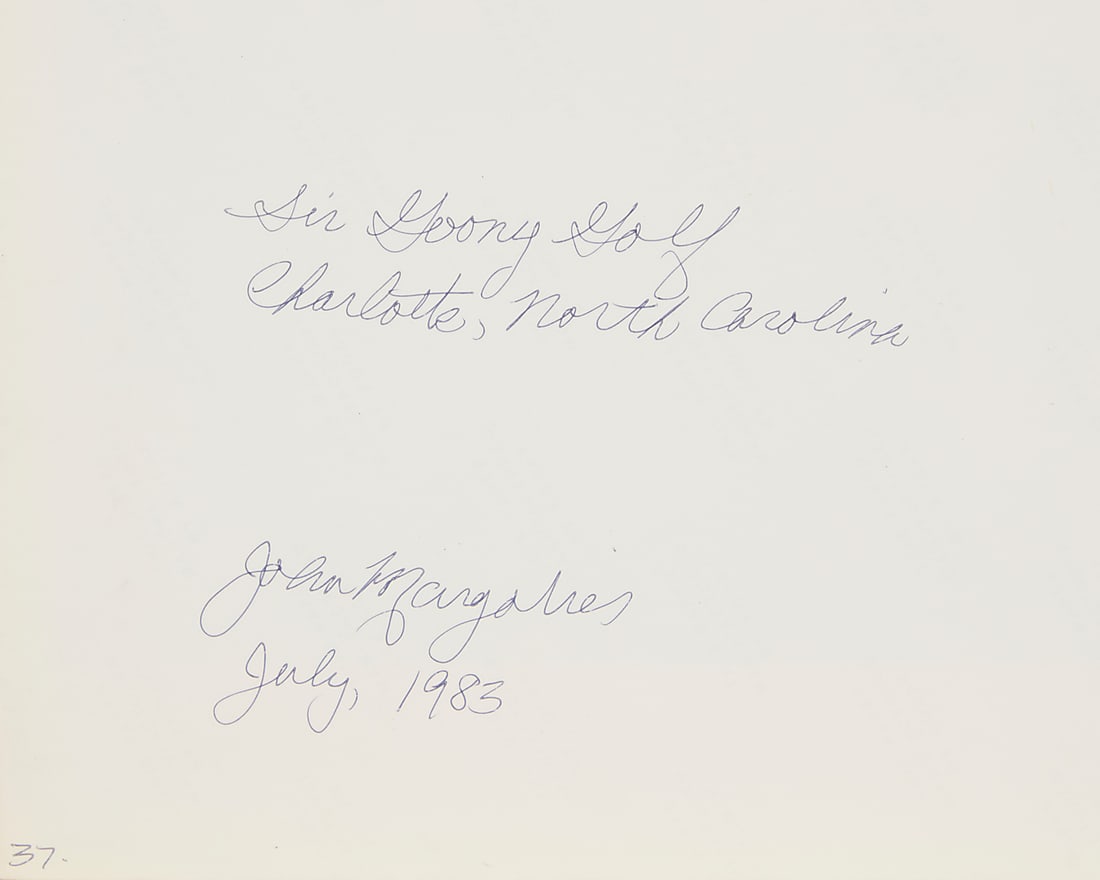 Sir Goony Golf
Charlotte, North Carolina
John Margolies
July, 1983
37.